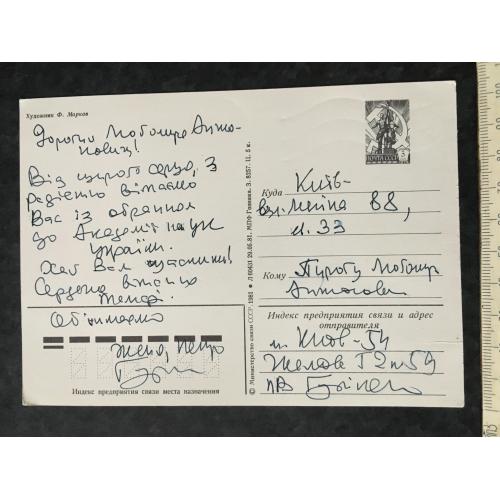 Художник Ф. Марков
Дорогий Любомире Анто-
нович!
Від щирого серця, з
радістю вітаємо
Вас із обранням
до Академії наук
України.
Хай Вам щастить!
Сердечно вітаємо
Обіймаємо
Женя, Петро
Индекс предприятия связи места назначения
© Министерство связи СССР. 1981
Л 60631 29.05.81. МПФ Гознака. З. 8257. Ц. 5 к.
ПОЧТА СССР
Куда
Київ-
вул. Леніна 88,
п. 33
Кому
Пирогу Любомиру
Антоновичу
Индекс предприятия связи и адрес
отправителя
м. Київ-54